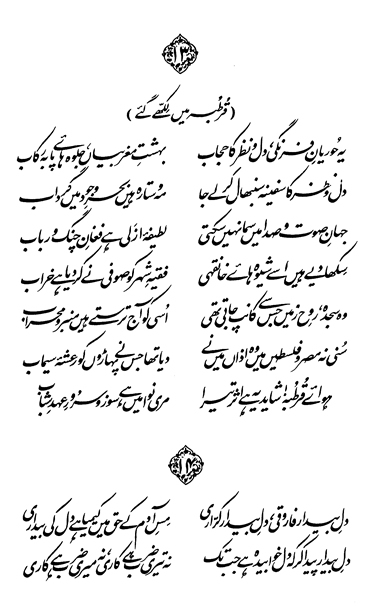 ۱۳
(قُرطُبہ میں لِکھّے گئے)
یہ حُوریانِ فرنگی، دل و نظر کا حجاب بہشتِ مغربیاں، جلوہ ہائے پا بہ رکاب
دل و نظر کا سفینہ سنبھال کر لے جا مہ و ستارہ ہیں بحرِ وجود میں گرداب
جہانِ صوت و صدا میں سما نہیں سکتی لطیفۂ ازلی ہے فغانِ چنگ و رباب
سِکھا دیے ہیں اسے شیوہ ہائے خانقہی فقیہِ شہر کو صوفی نے کر دیا ہے خراب
وہ سجدہ، روحِ زمیں جس سے کانپ جاتی تھی اُسی کو آج ترستے ہیں منبر و محراب
سُنی نہ مصر و فلسطیں میں وہ اذاں میں نے دیا تھا جس نے پہاڑوں کو رعشۂ سیماب
ہوائے قُرطُبہ! شاید یہ ہے اثر تیرا مری نوا میں ہے سوز و سرورِ عہدِ شباب
۱۴
دلِ بیدار فاروقی، دلِ بیدار کرّاری مِسِ آدم کے حق میں کیمیا ہے دل کی بیداری
دلِ بیدار پیدا کر کہ دل خوابیدہ ہے جب تک نہ تیری ضرب ہے کاری، نہ میری ضرب ہے کاری